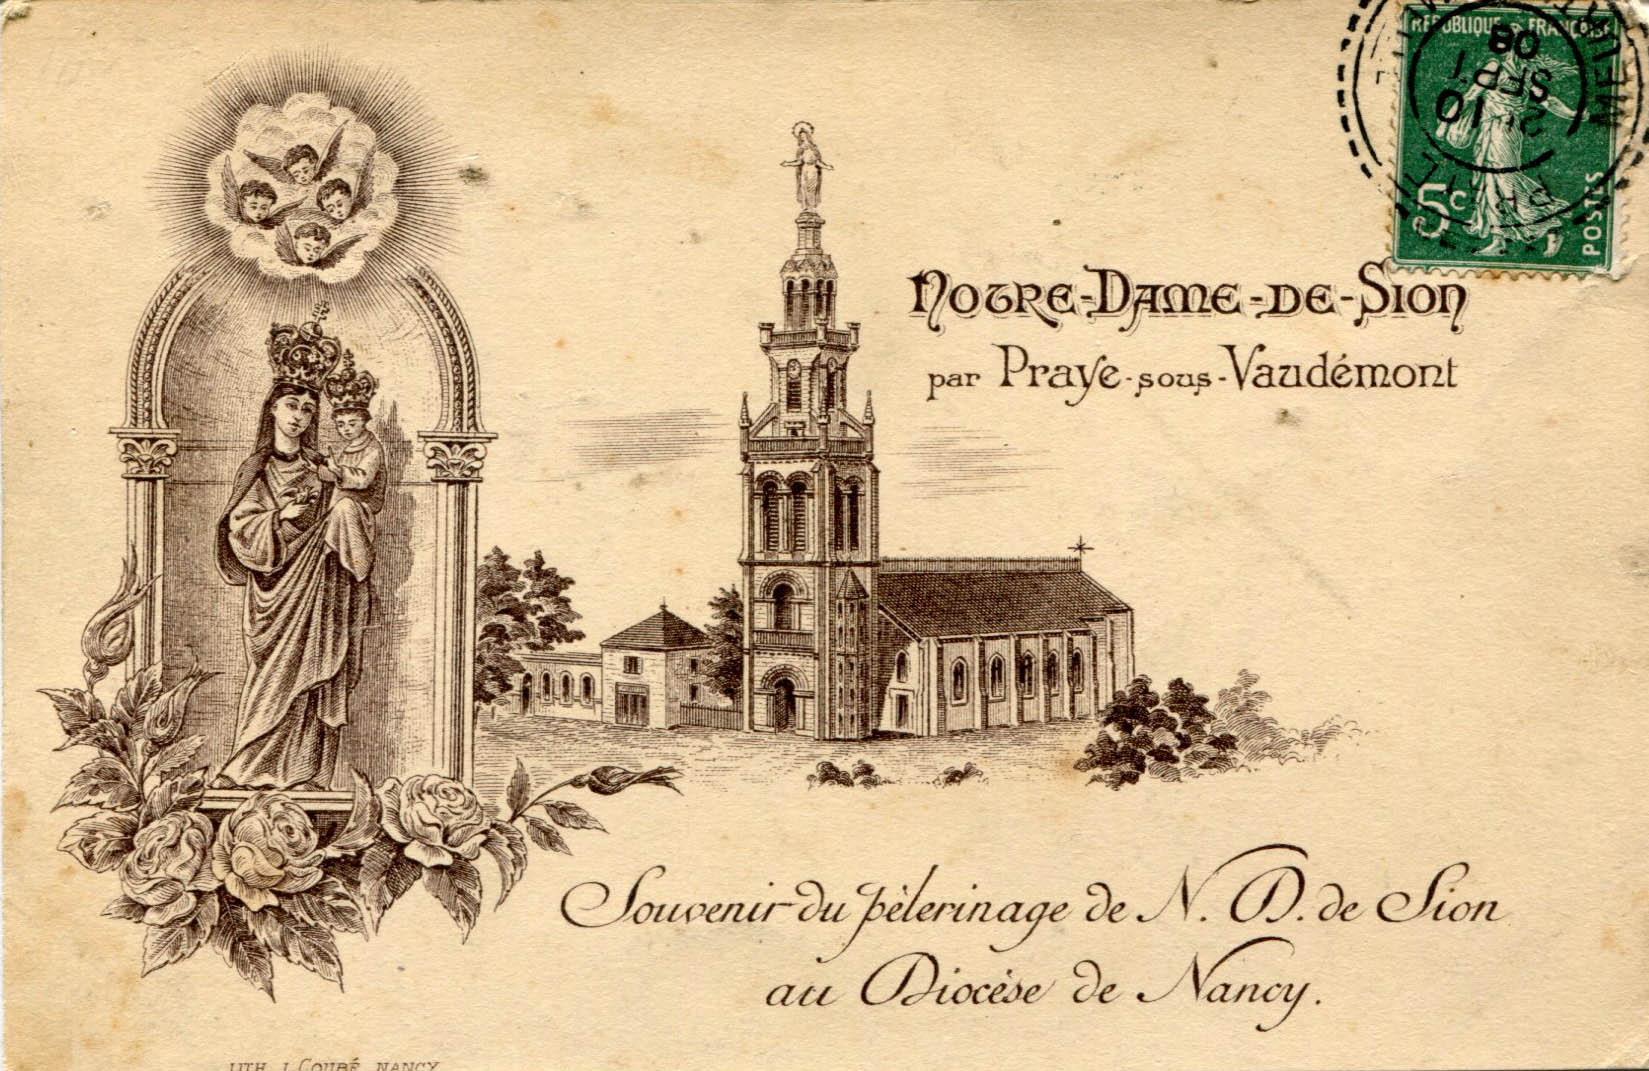 RÉPUBLIQUE FRANÇAISE
08
SEPT
10
5c
POSTES
Notre-Dame-de-Sion
par Praye-sous-Vaudémont
Souvenir du pèlerinage de N. D. de Sion
au Diocèse de Nancy.
LITH. J. COUBÉ NANCY